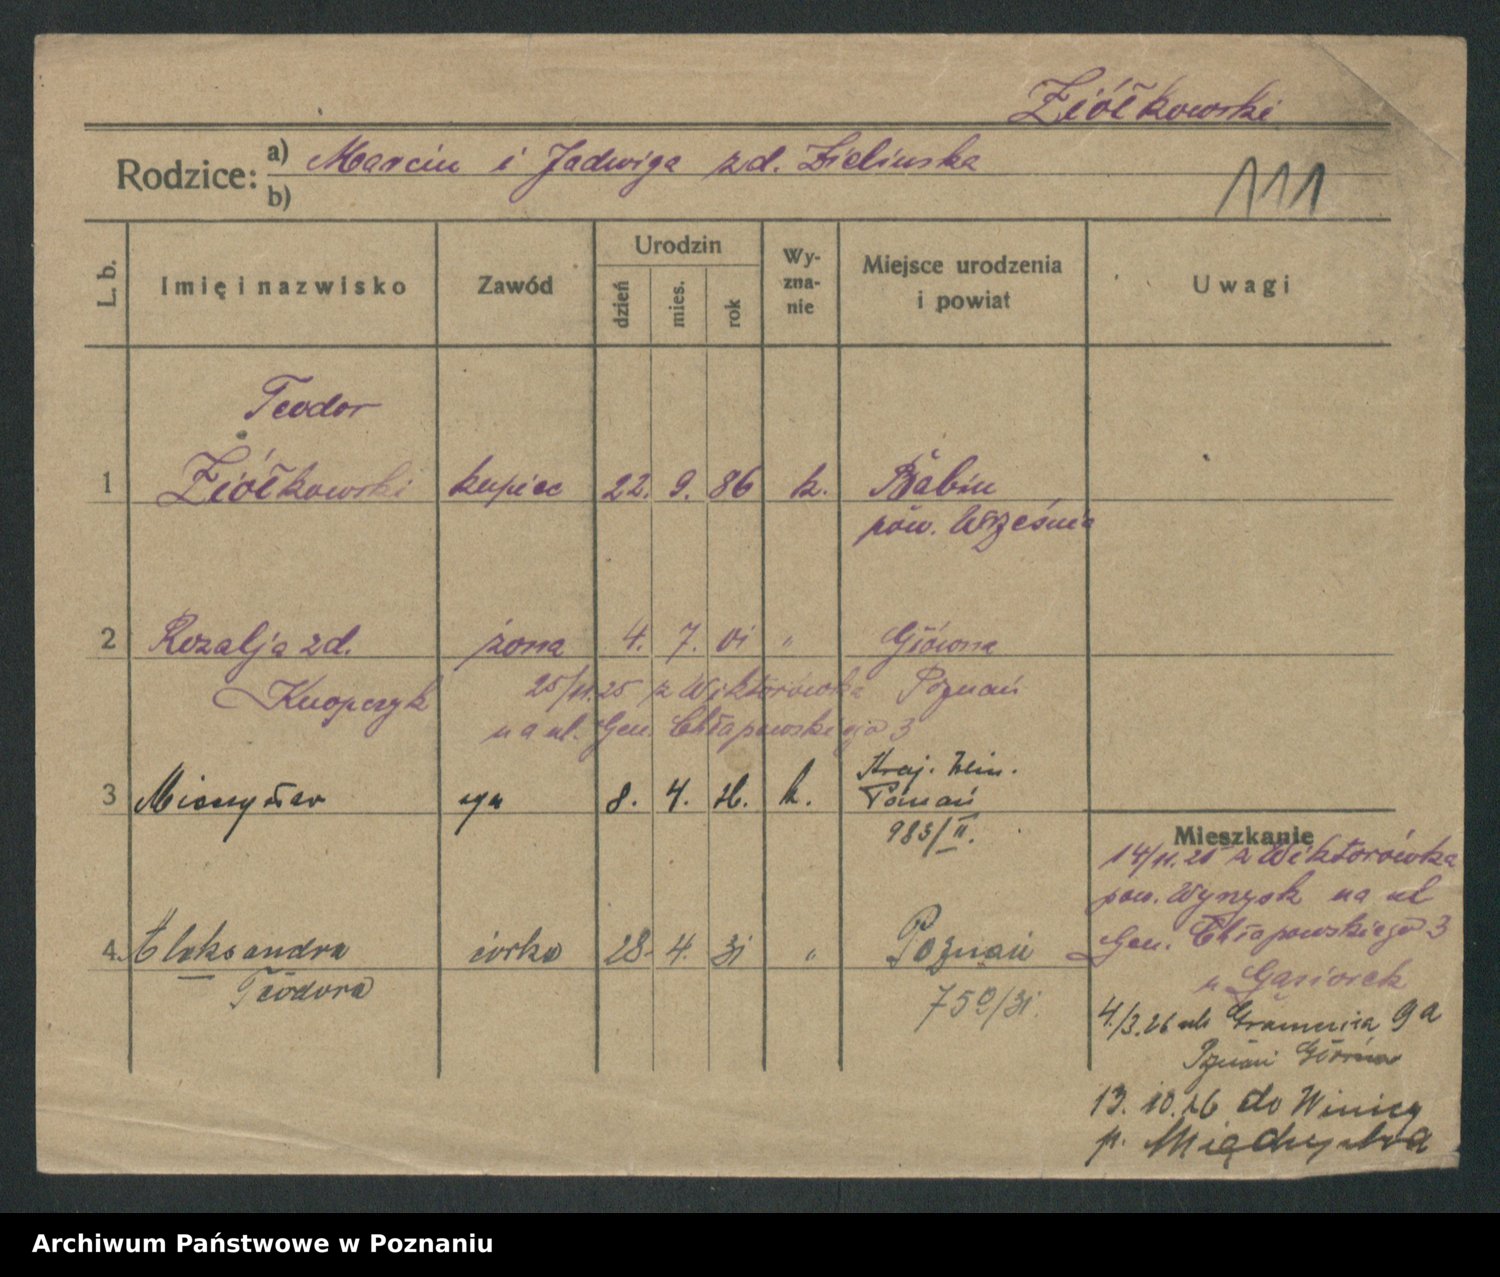 Ziółkowski
Rodzice: a) Marcin i Jadwiga zd. Zielinska
b)
111
L. b.
Imię i nazwisko
Zawód
Urodzin
dzień
mies.
rok
Wy-
zna-
nie
Miejsce urodzenia
i powiat
Uwagi
Teodor
1 Ziółkowski kupiec 22. 9. 86 k. Babin
pow. Września
2 Rozalja zd. żona 4. 7. 01 " Główna
Knopczyk 25/11.25 z Wiktorówka Poznań
na ul. Gen. Chłapowskiego 3
3 Mieczysław syn 8. 4. 26. k. Kraj. Klin.
Poznań
983/II.
Mieszkanie
14/11.25 z Wiktorówka
pow. Wyrzysk na ul
Gen. Chłapowskiego 3
u Gąsiorek
4. Aleksandra córka 28. 4. 31 " Poznań
Teodora 750/31.
4./3.26 ul. 9a
Poznań Główna
13. 10. 26 do Winicy
p. Międzychód
Archiwum Państwowe w Poznaniu